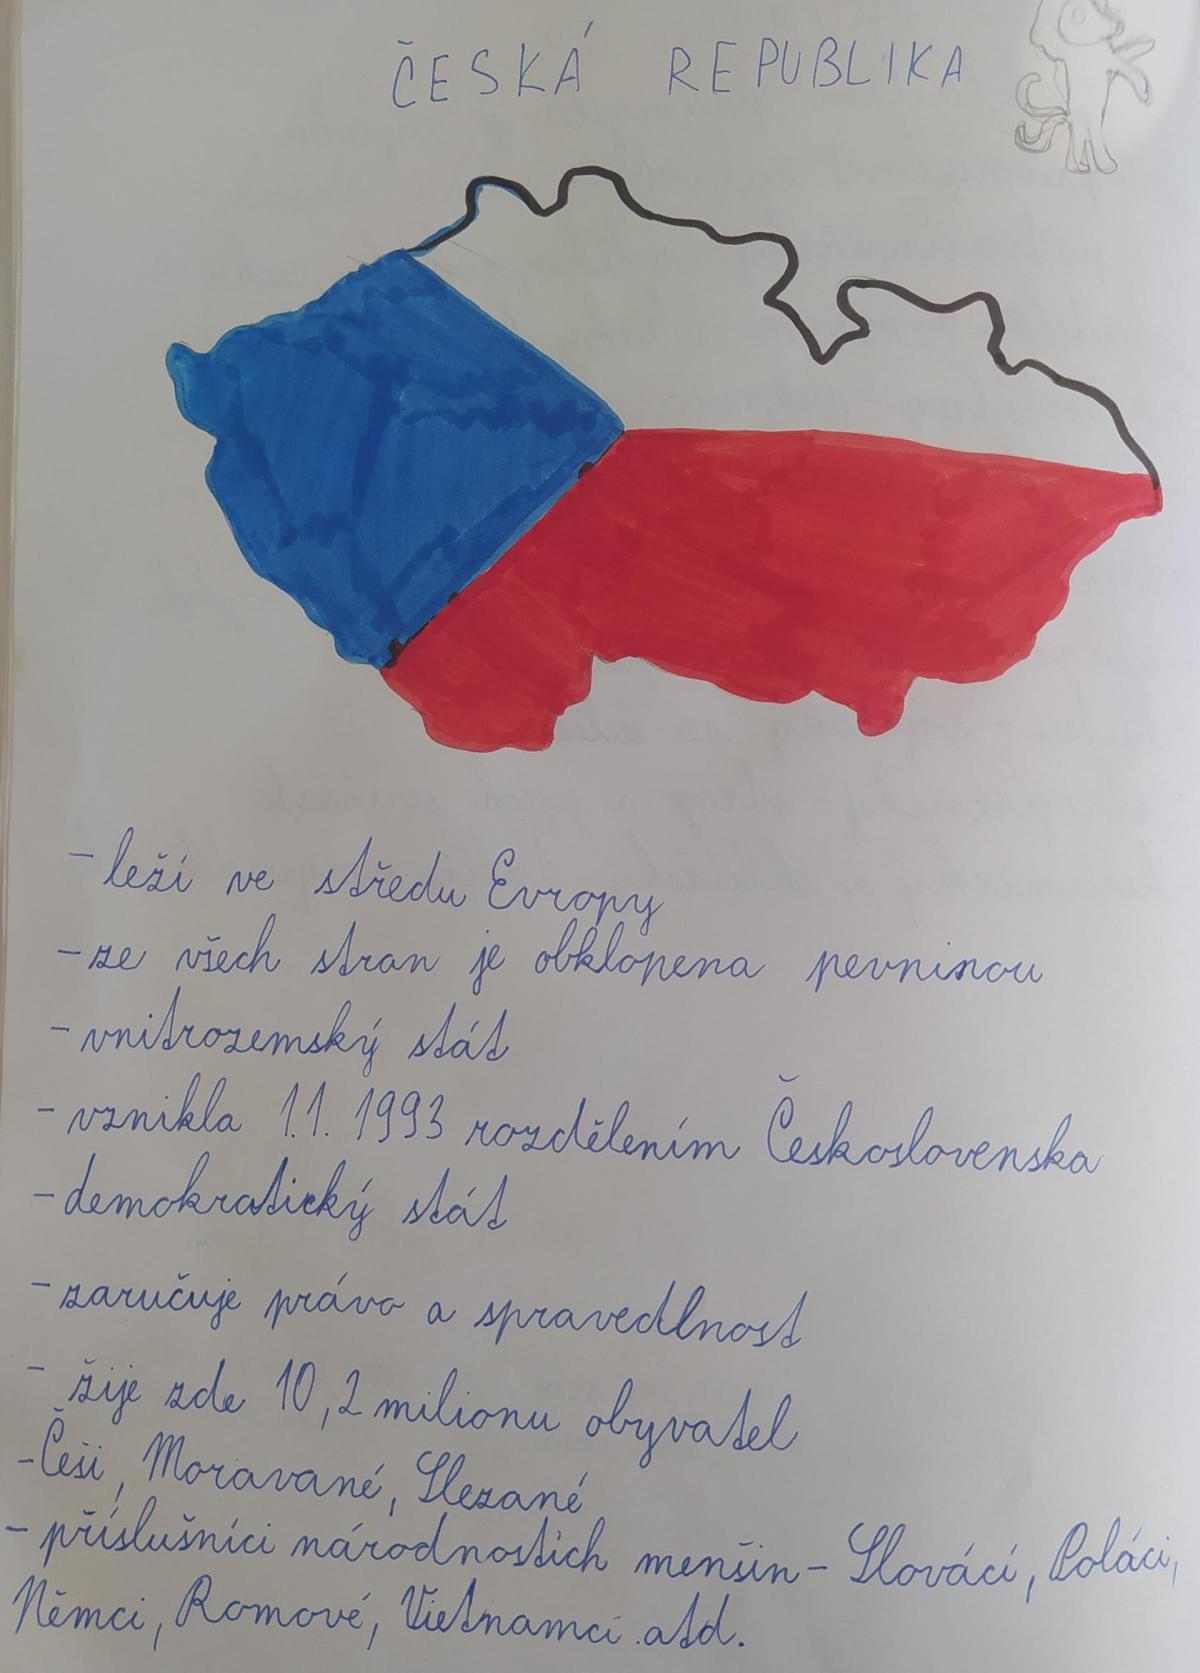 ČESKÁ REPUBLIKA
- leží ve středu Evropy
- ze všech stran je obklopena pevninou
- vnitrozemský stát
- vznikla 1.1. 1993 rozdělením Československa
- demokratický stát
- zaručuje právo a spravedlnost
- žije zde 10,2 milionu obyvatel
- Češi, Moravané, Slezané
- příslušníci národnostich menšin - Slováci, Poláci,
Němci, Romové, Vietnamci atd.